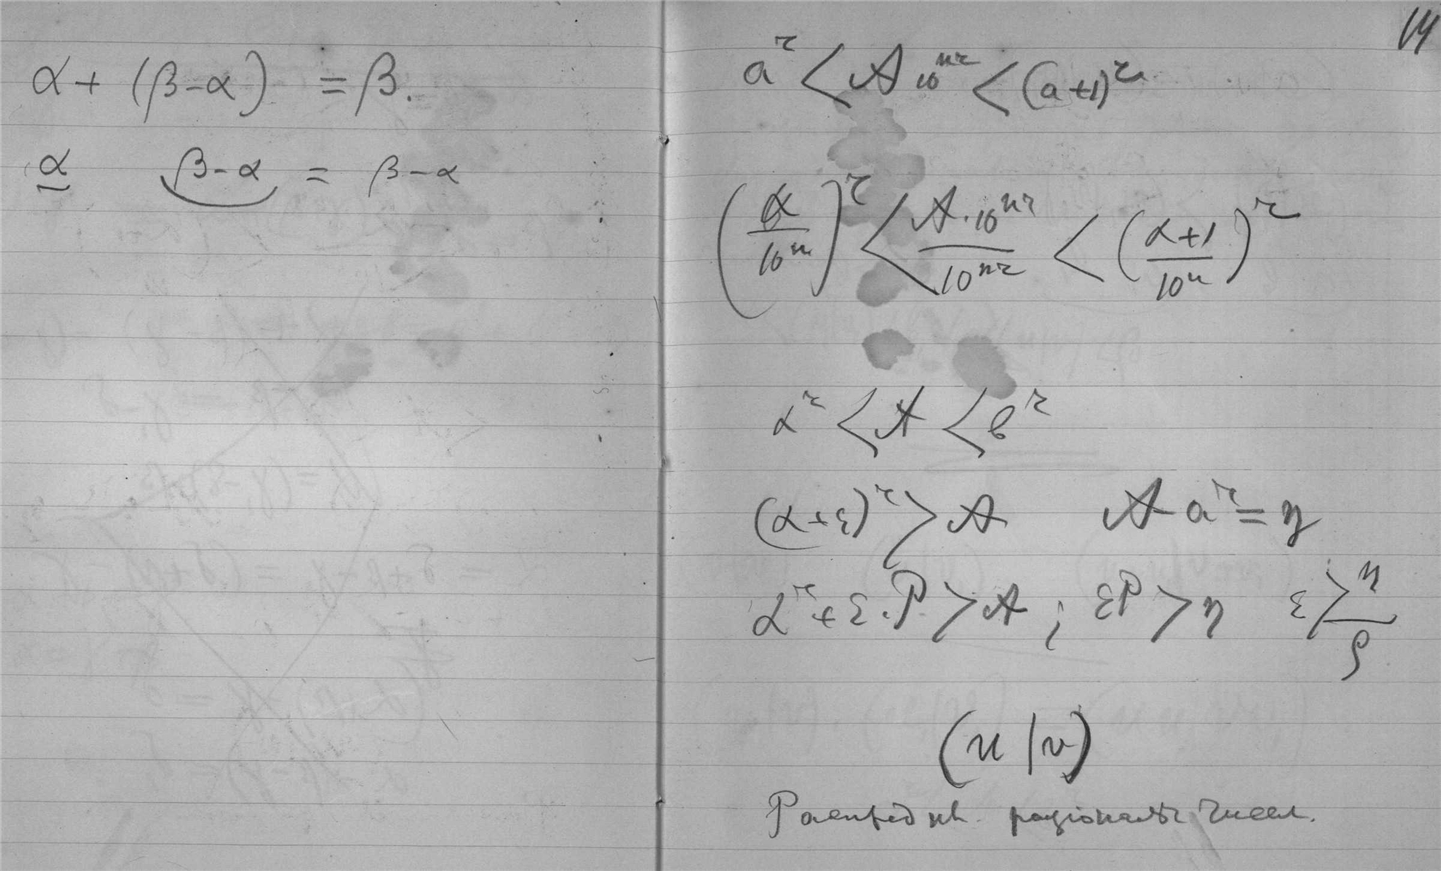 α + (β-α) = β.
α β-α = β-α
14
a^r < A 10^{nr} < (a+1)^r
(α/10^n)^r < A·10^{nr}/10^{nr} < (α+1/10^n)^r
α^r < A < b^r
(α+ε)^r > A A a^r = η
α^r + ε·P > A ; εP > η ε > η/ρ
(u | v)
рационалн. чисел.